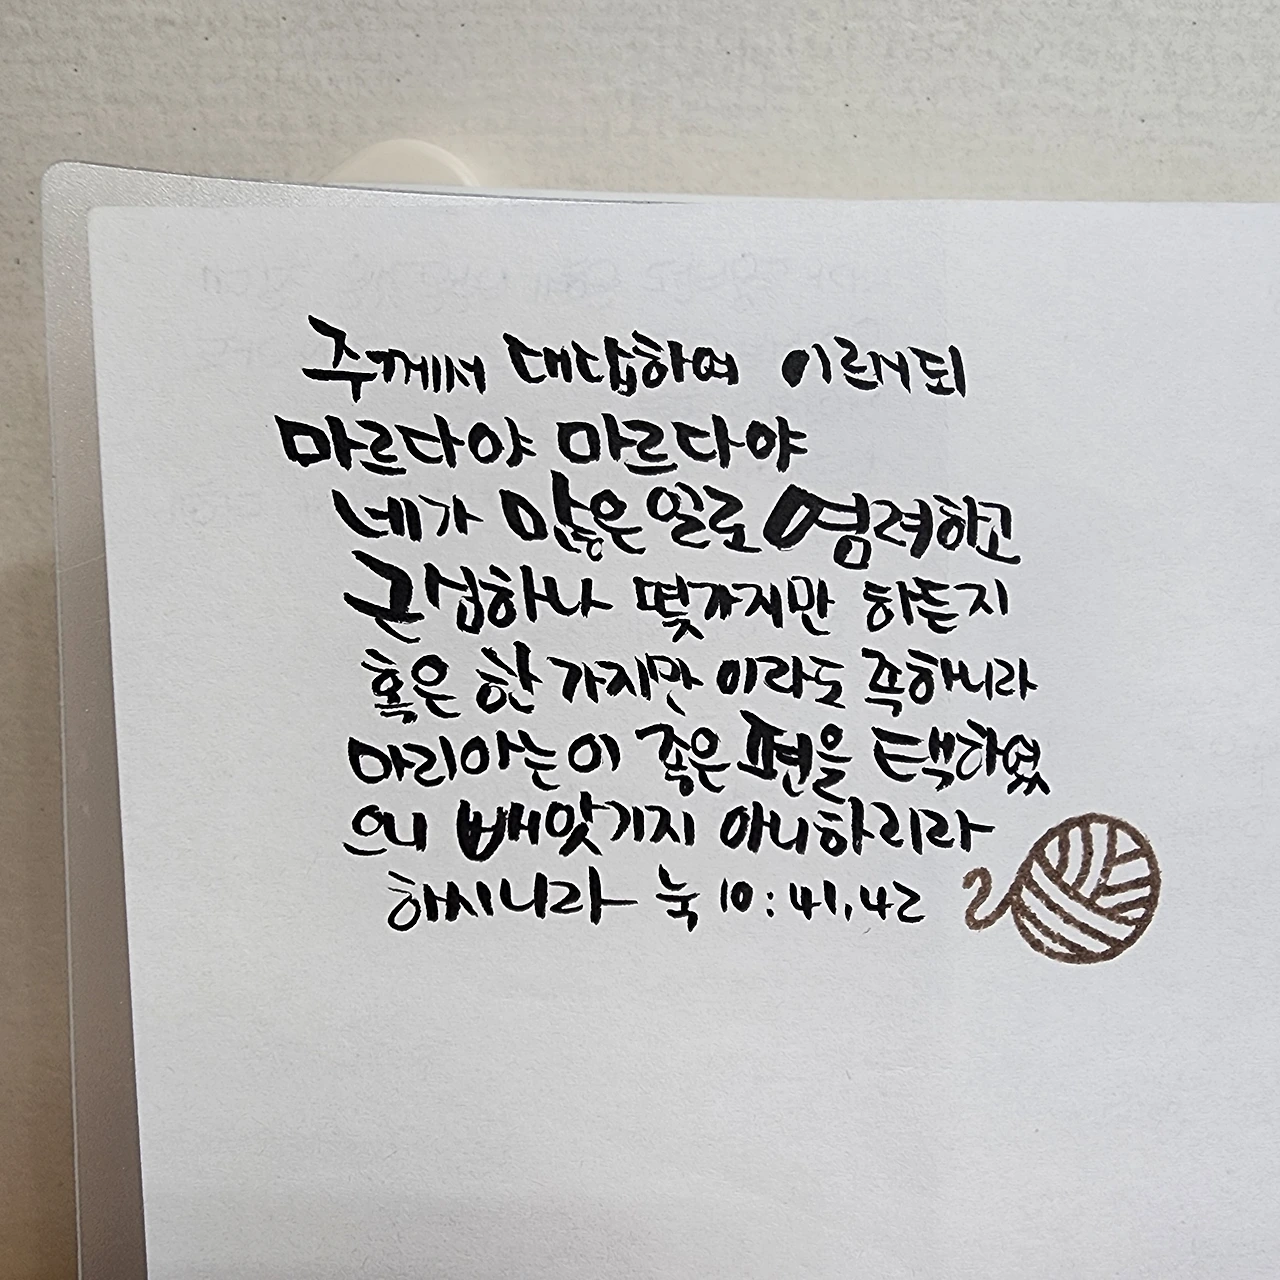 주께서 대답하여 이르시되
마르다야 마르다야
네가 많은 일로 염려하고
근심하나 몇가지만 하든지
혹은 한 가지만 이라도 족하니라
마리아는 이 좋은 편을 택하였
으니 빼앗기지 아니하리라
하시니라 눅 10:41,42